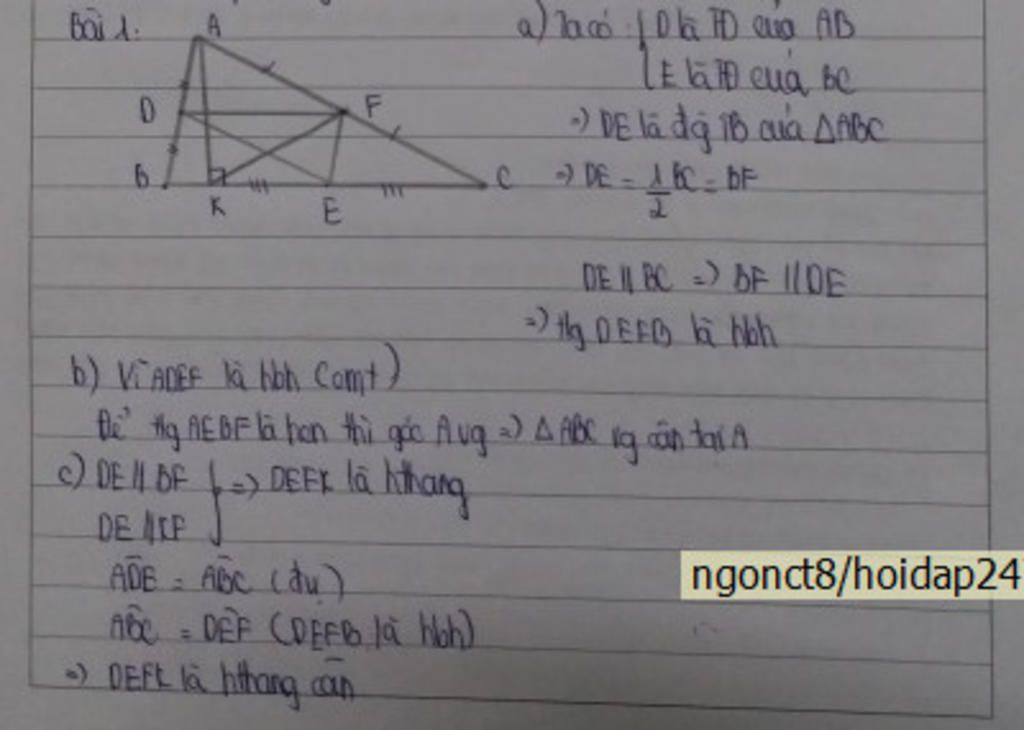 Bài 1:
A
D
F
B
K
E
C
a) Ta có: { D là TĐ của AB
E là TĐ của BC
=> DE là đg TB của △ABC
=> DE = 1/2 BC = BF
DE // BC => BF // DE
=> tg DEFB là hbh
b) Vì ADEF là hbh (cmt)
Để tg AEBF là hcn thì góc A vg => △ABC vg cân tại A
c) DE // BF } => DEFK là hthang
DE // KF
ADE = ABC (đv)
ABC = DEF (DEFB là hbh)
=> DEFK là hthang cân
ngonct8/hoidap24